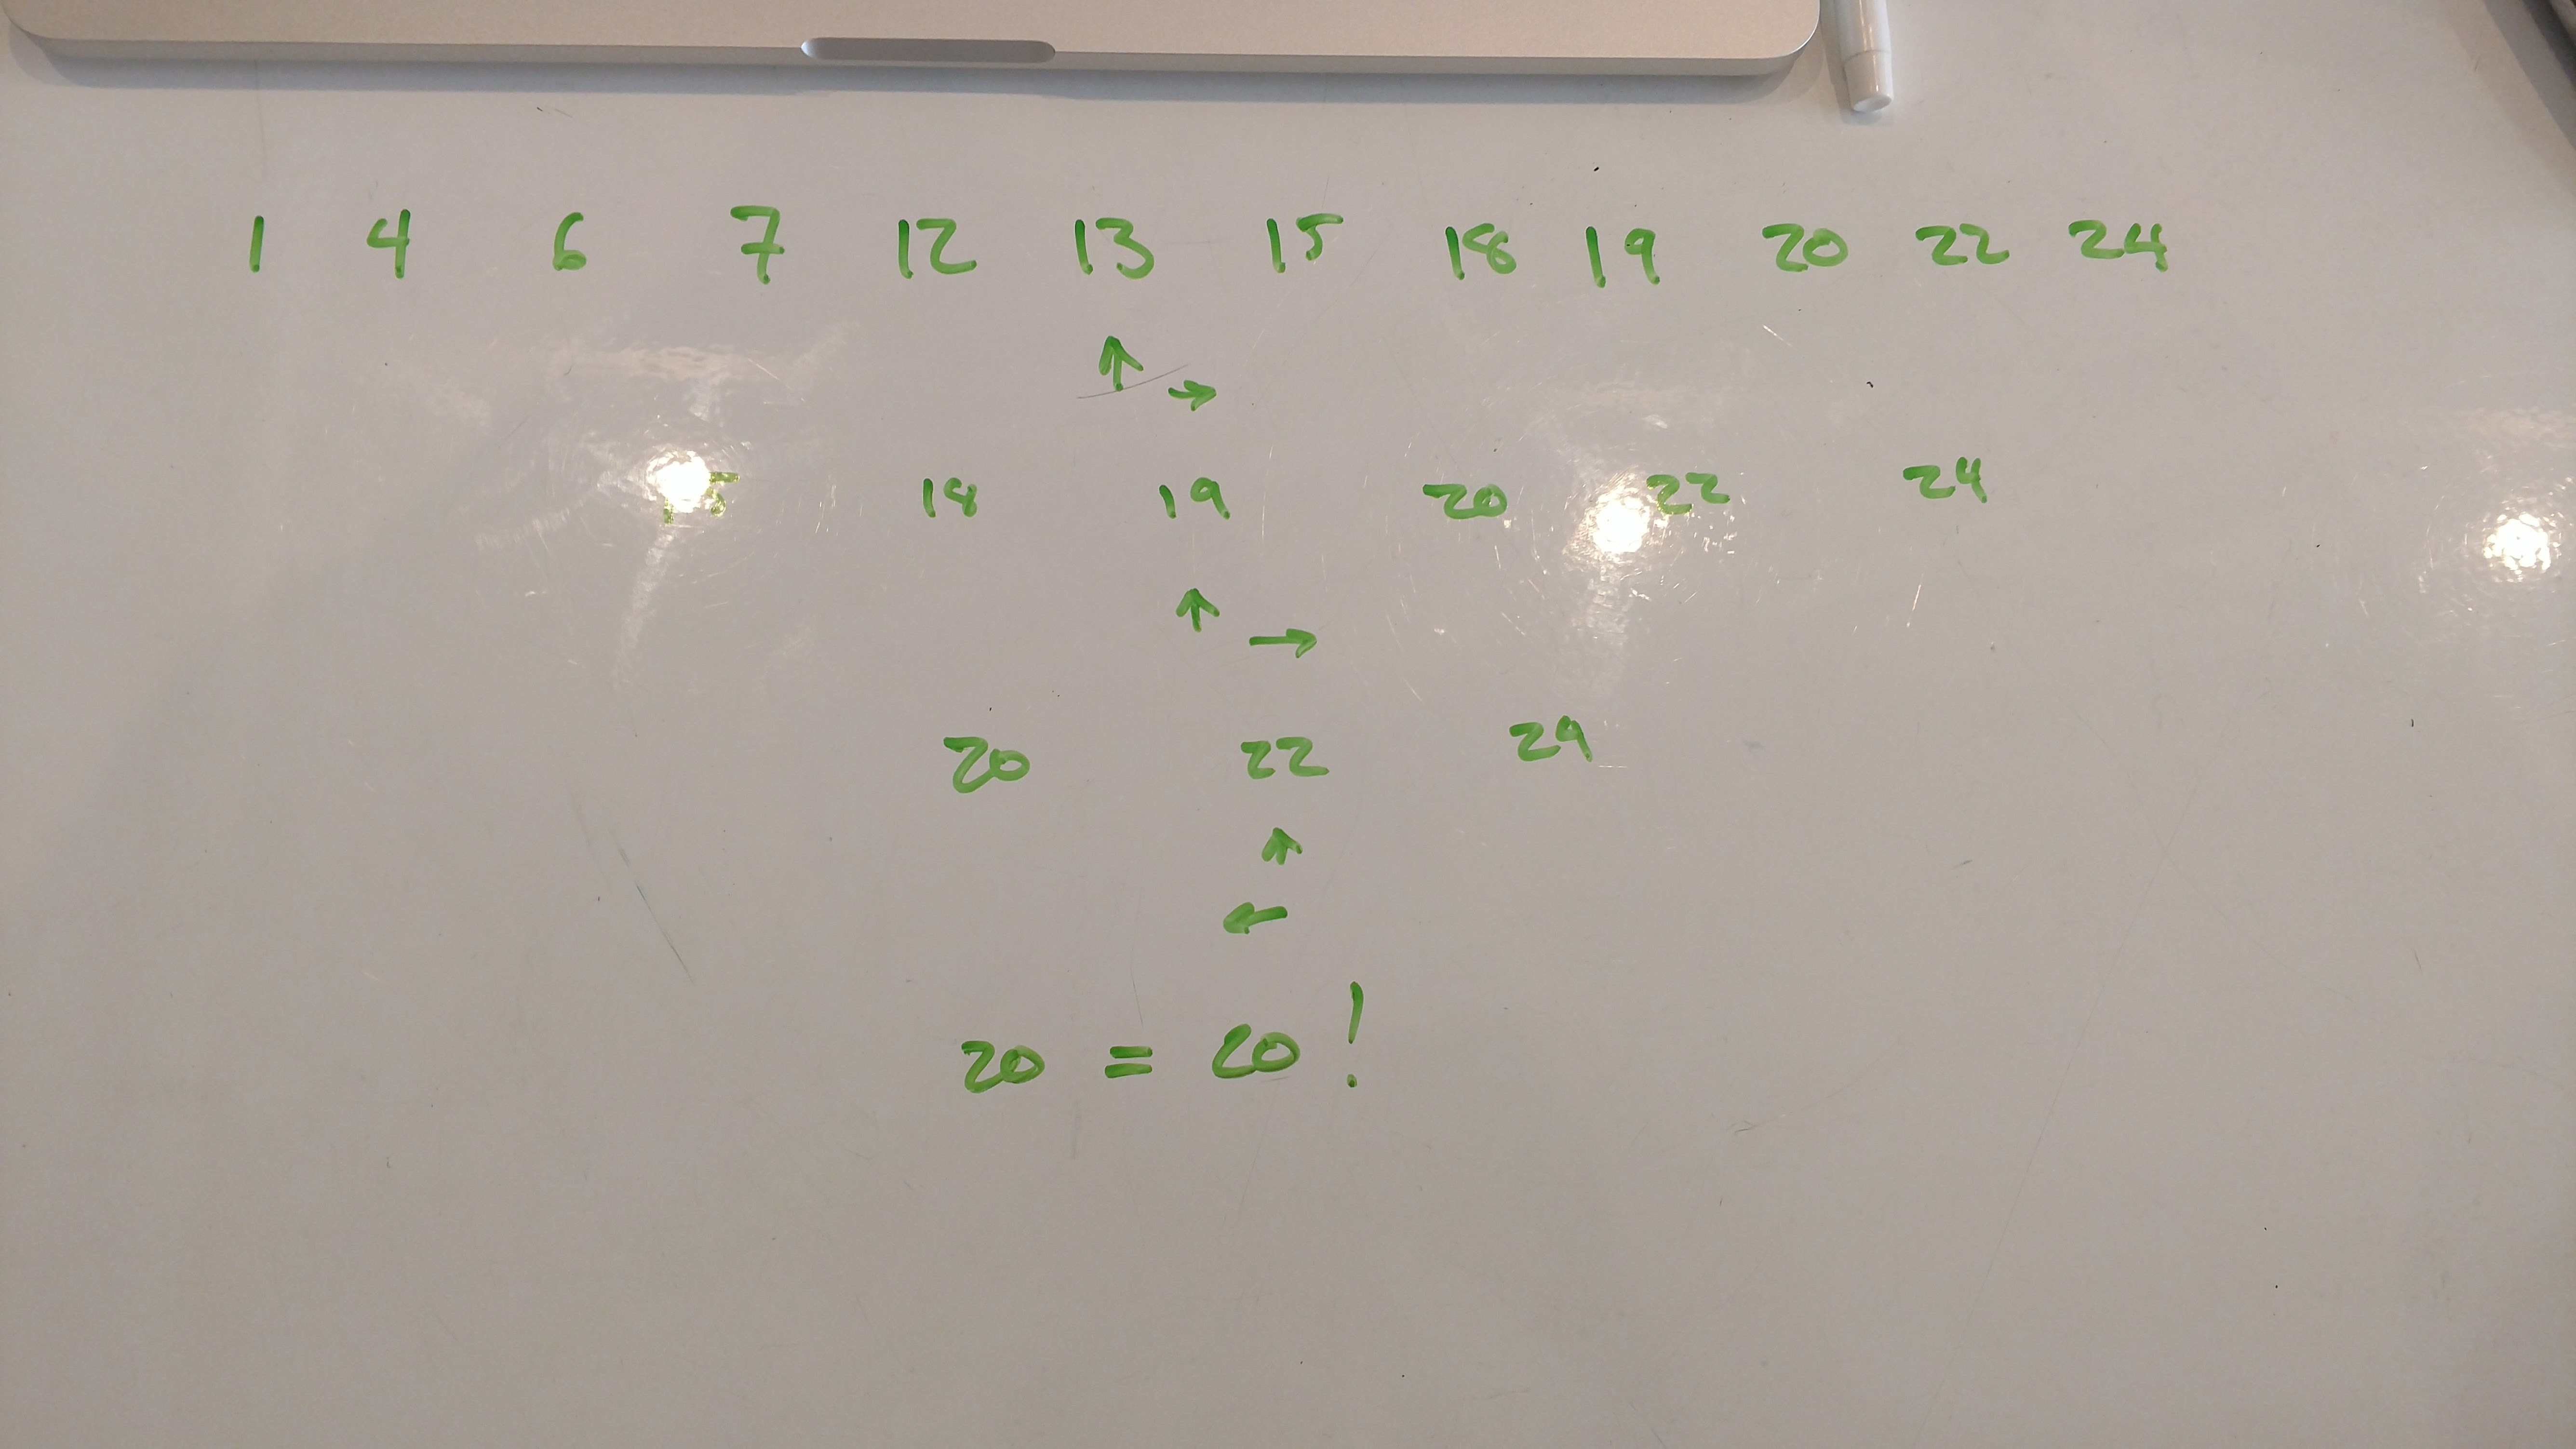 1 4 6 7 12 13 15 18 19 20 22 24
↑ →
15 18 19 20 22 24
↑ →
20 22 24
↑
←
20 = 20!